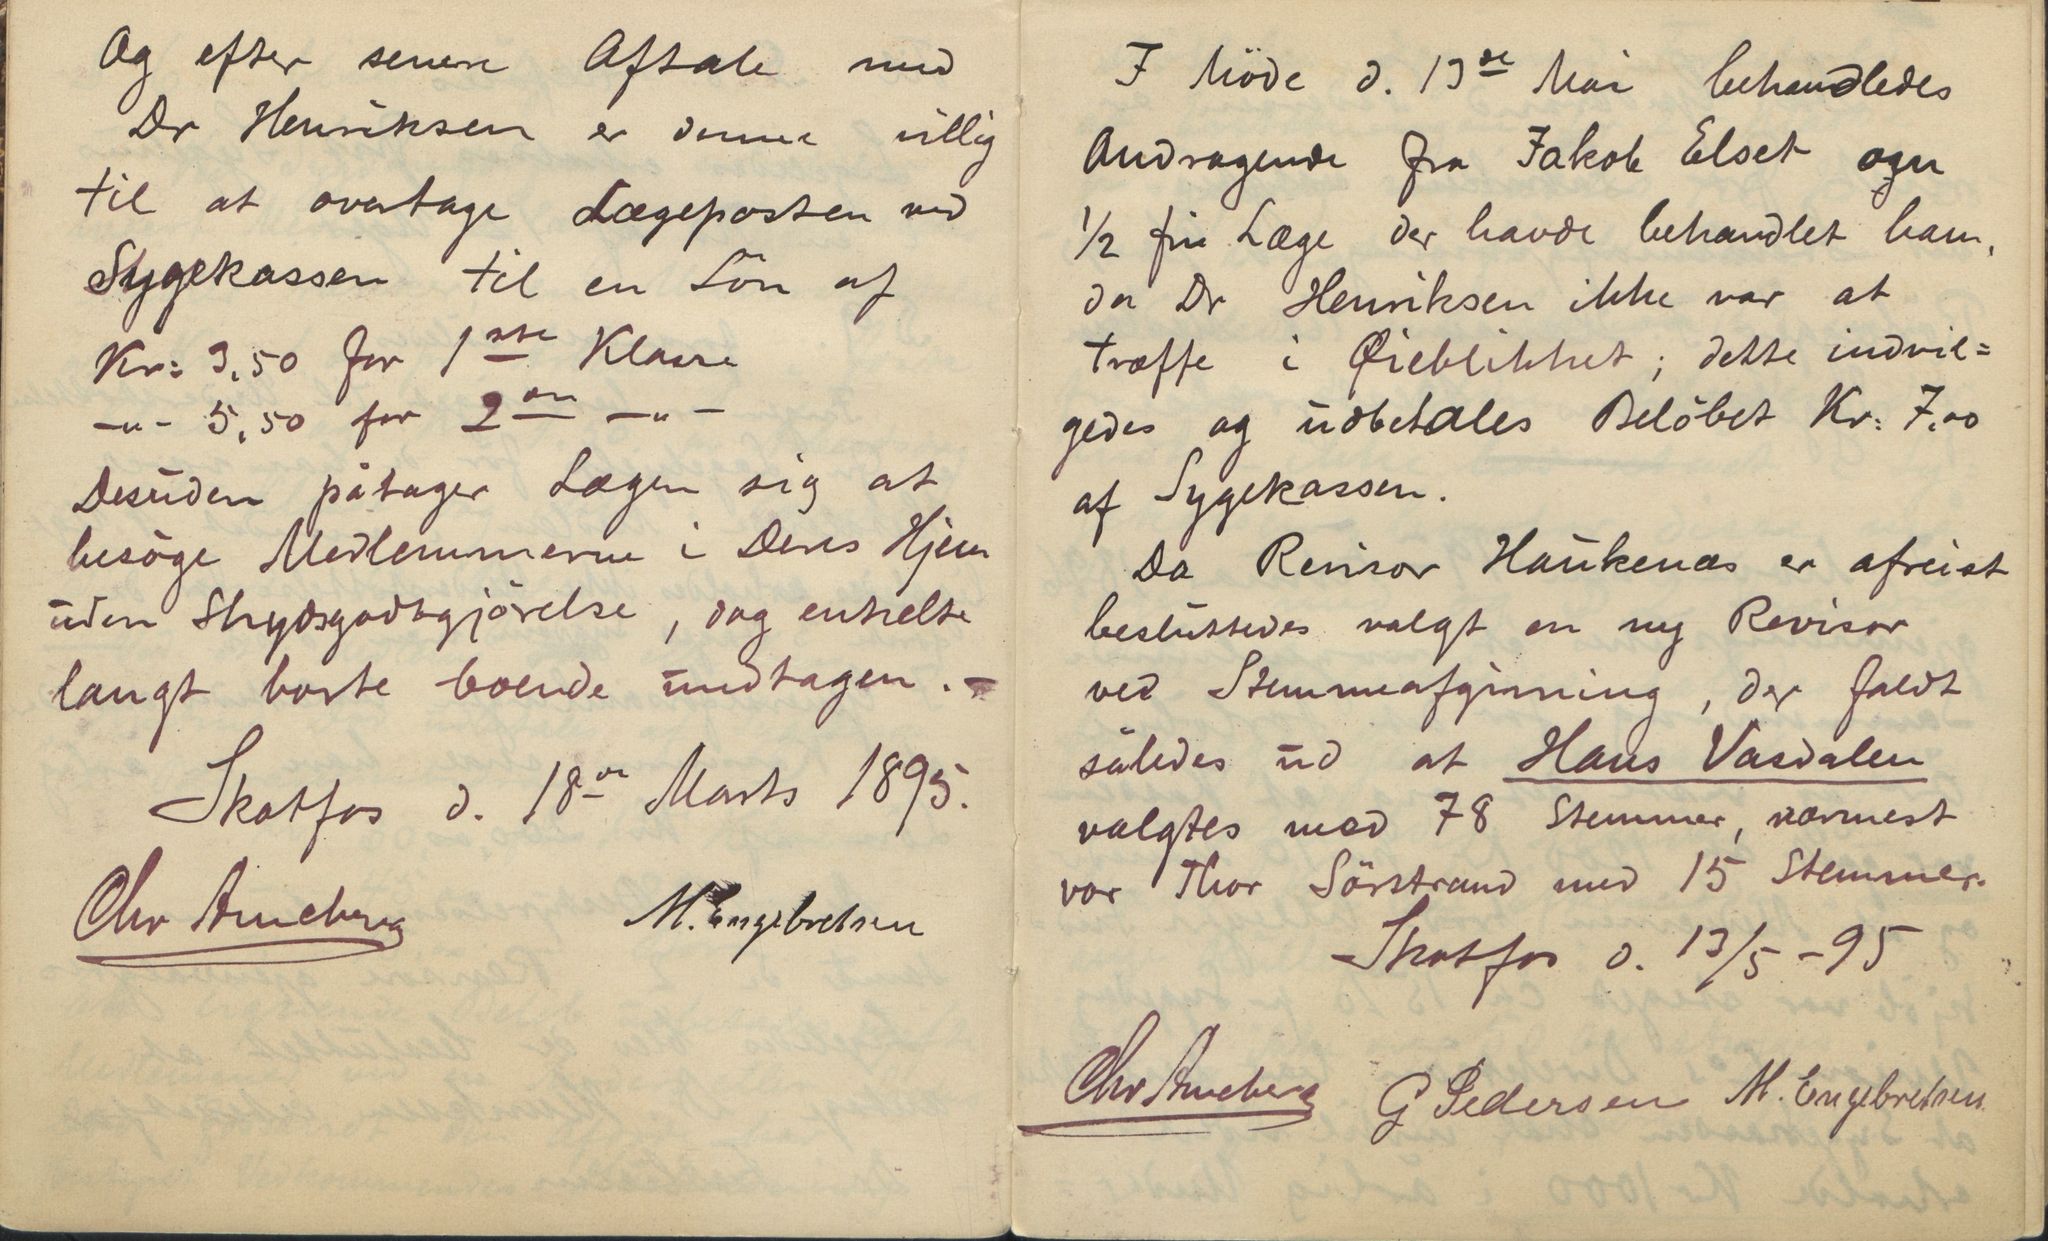 Og efter senere Aftale med
Dr Henriksen er denne villig
til at overtage Lægeposten ved
Sygekassen til en Lön af
Kr: 3,50 for 1ste Klasse
—„— 5,50 for 2den —„—
Desuden påtager Lægen sig at
besöge Medlemmerne i Deres Hjem
uden Skydsgodtgjörelse, dog enkelte
langt borte boende undtagen. —
Skotfos d. 18de Marts 1895.
Chr Arneberg M. Engebretsen
I Möde d. 13de Mai behandledes
Andragende fra Jakob Elset
1/2 fri Læge der havde behandlet ham,
da Dr Henriksen ikke var at
træffe i Øieblikket; dette indvil=
gedes og udbetales Belöbet Kr: 7.00
af Sygekassen.
Da Revisor Haukenæs er afreist
besluttedes valgt en ny Revisor
ved Stemmeafgivning, der faldt
således ud at Hans Vasdalen
valgtes med 78 Stemmer, nærmest
var Thor Sörstrand med 15 Stemmer.
Skotfos d. 13/5 – 95
Chr Arneberg G Pedersen M. Engebretsen